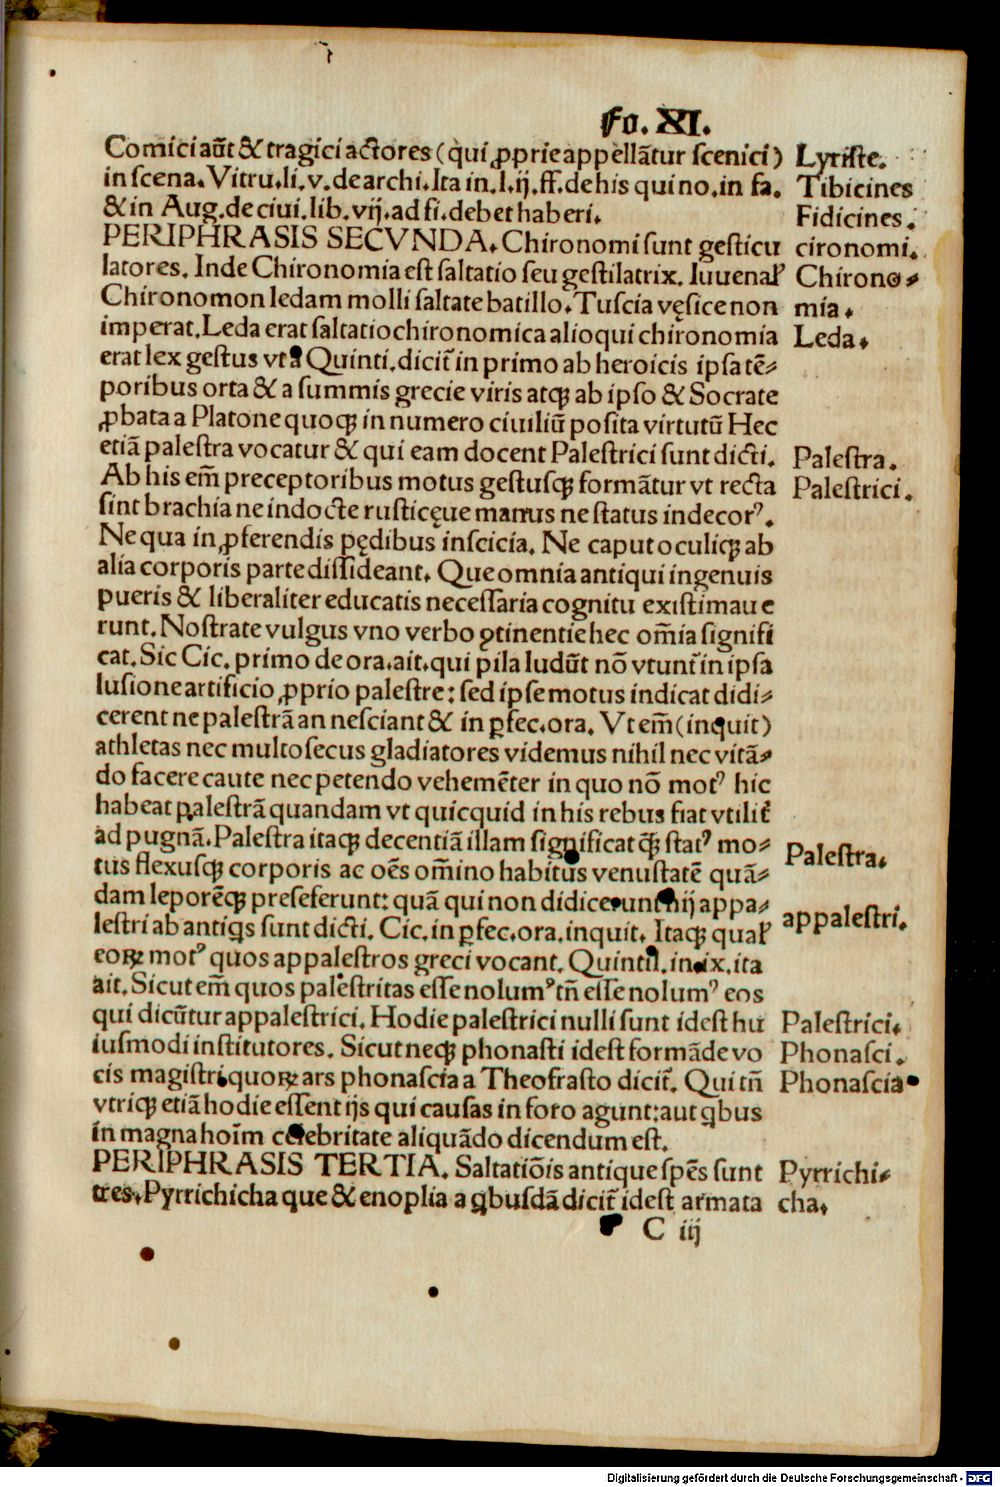 Fo. XI.
Comici aūt & tragici actores (qui ꝓprie appellātur scenici) Lyriste.
in scena. Vitru. li. v. de archi. Ita in. l. ij. ff. de his qui no. in fa. Tibicines
& in Aug. de ciui. lib. vij. ad fi. debet haberi. Fidicines.
PERIPHRASIS SECVNDA. Chironomi sunt gesticu cironomi.
latores. Inde Chironomia est saltatio seu gestilatrix. Iuuenaƚ Chirono⸗
Chironomon ledam molli saltate batillo. Tuscia vęsice non mia.
imperat. Leda erat saltatio chironomica alioqui chironomia Leda.
erat lex gestus vt Quinti. dicit̃ in primo ab heroicis ipsa tē⸗
poribus orta & a summis grecie viris atqꝫ ab ipso & Socrate
ꝓbata a Platone quoqꝫ in numero ciuiliū posita virtutū Hec
etiā palestra vocatur & qui eam docent Palestrici sunt dicti. Palestra.
Ab his em̄ preceptoribus motus gestusqꝫ formātur vt recta Palestrici.
sint brachia ne indocte rusticęue manus ne status indecorꝰ.
Ne qua in ꝓferendis pędibus inscicia. Ne caput oculiqꝫ ab
alia corporis parte dissideant. Que omnia antiqui ingenuis
pueris & liberaliter educatis necessaria cognitu existimaue
runt. Nostrate vulgus vno verbo ꝑtinentie hec om̄ia signifi
cat. Sic Cic. primo de ora. ait. qui pila ludūt nō vtunt̃ in ipsa
lusione artificio ꝓprio palestre: sed ipse motus indicat didi⸗
cerent ne palestrā an nesciant & in ꝑfec. ora. Vt em̄ (inquit)
athletas nec multo secus gladiatores videmus nihil nec vitā⸗
do facere caute nec petendo vehemēter in quo nō motꝰ hic
habeat palestrā quandam vt quicquid in his rebus fiat vtilit̃
ad pugnā. Palestra itaqꝫ decentiā illam significat qꝫ̄ statꝰ mo⸗ Palestra.
tus flexusqꝫ corporis ac oēs om̄ino habitus venustatē quā⸗
dam leporēqꝫ preseferunt: quā qui non didicerunt hij appa⸗ appalestri.
lestri ab antiq̇s sunt dicti. Cic. in ꝑfec. ora. inquit. Itaqꝫ quaƚ
eoꝝ motꝰ quos appalestros greci vocant. Quintil. in. ix. ita
ait. Sicut em̄ quos palestritas esse nolumꝰ tn̄ esse nolumꝰ eos
qui dicūtur appalestrici. Hodie palestrici nulli sunt idest hu Palestrici.
iusmodi institutores. Sicut neqꝫ phonasti idest formāde vo Phonasci.
cis magistri quoꝝ ars phonascia a Theofrasto dicit̃. Qui tn̄ Phonascia
vtriqꝫ etiā hodie essent ijs qui causas in foro agunt: aut q̇bus
in magna hoīm celebritate aliquādo dicendum est.
PERIPHRASIS TERTIA. Saltatiōis antique spēs sunt Pyrrichi⸗
tres. Pyrrichicha que & enoplia a q̇busdā dicit̃ idest armata cha.
C iij
Digitalisierung gefördert durch die Deutsche Forschungsgemeinschaft - DFG